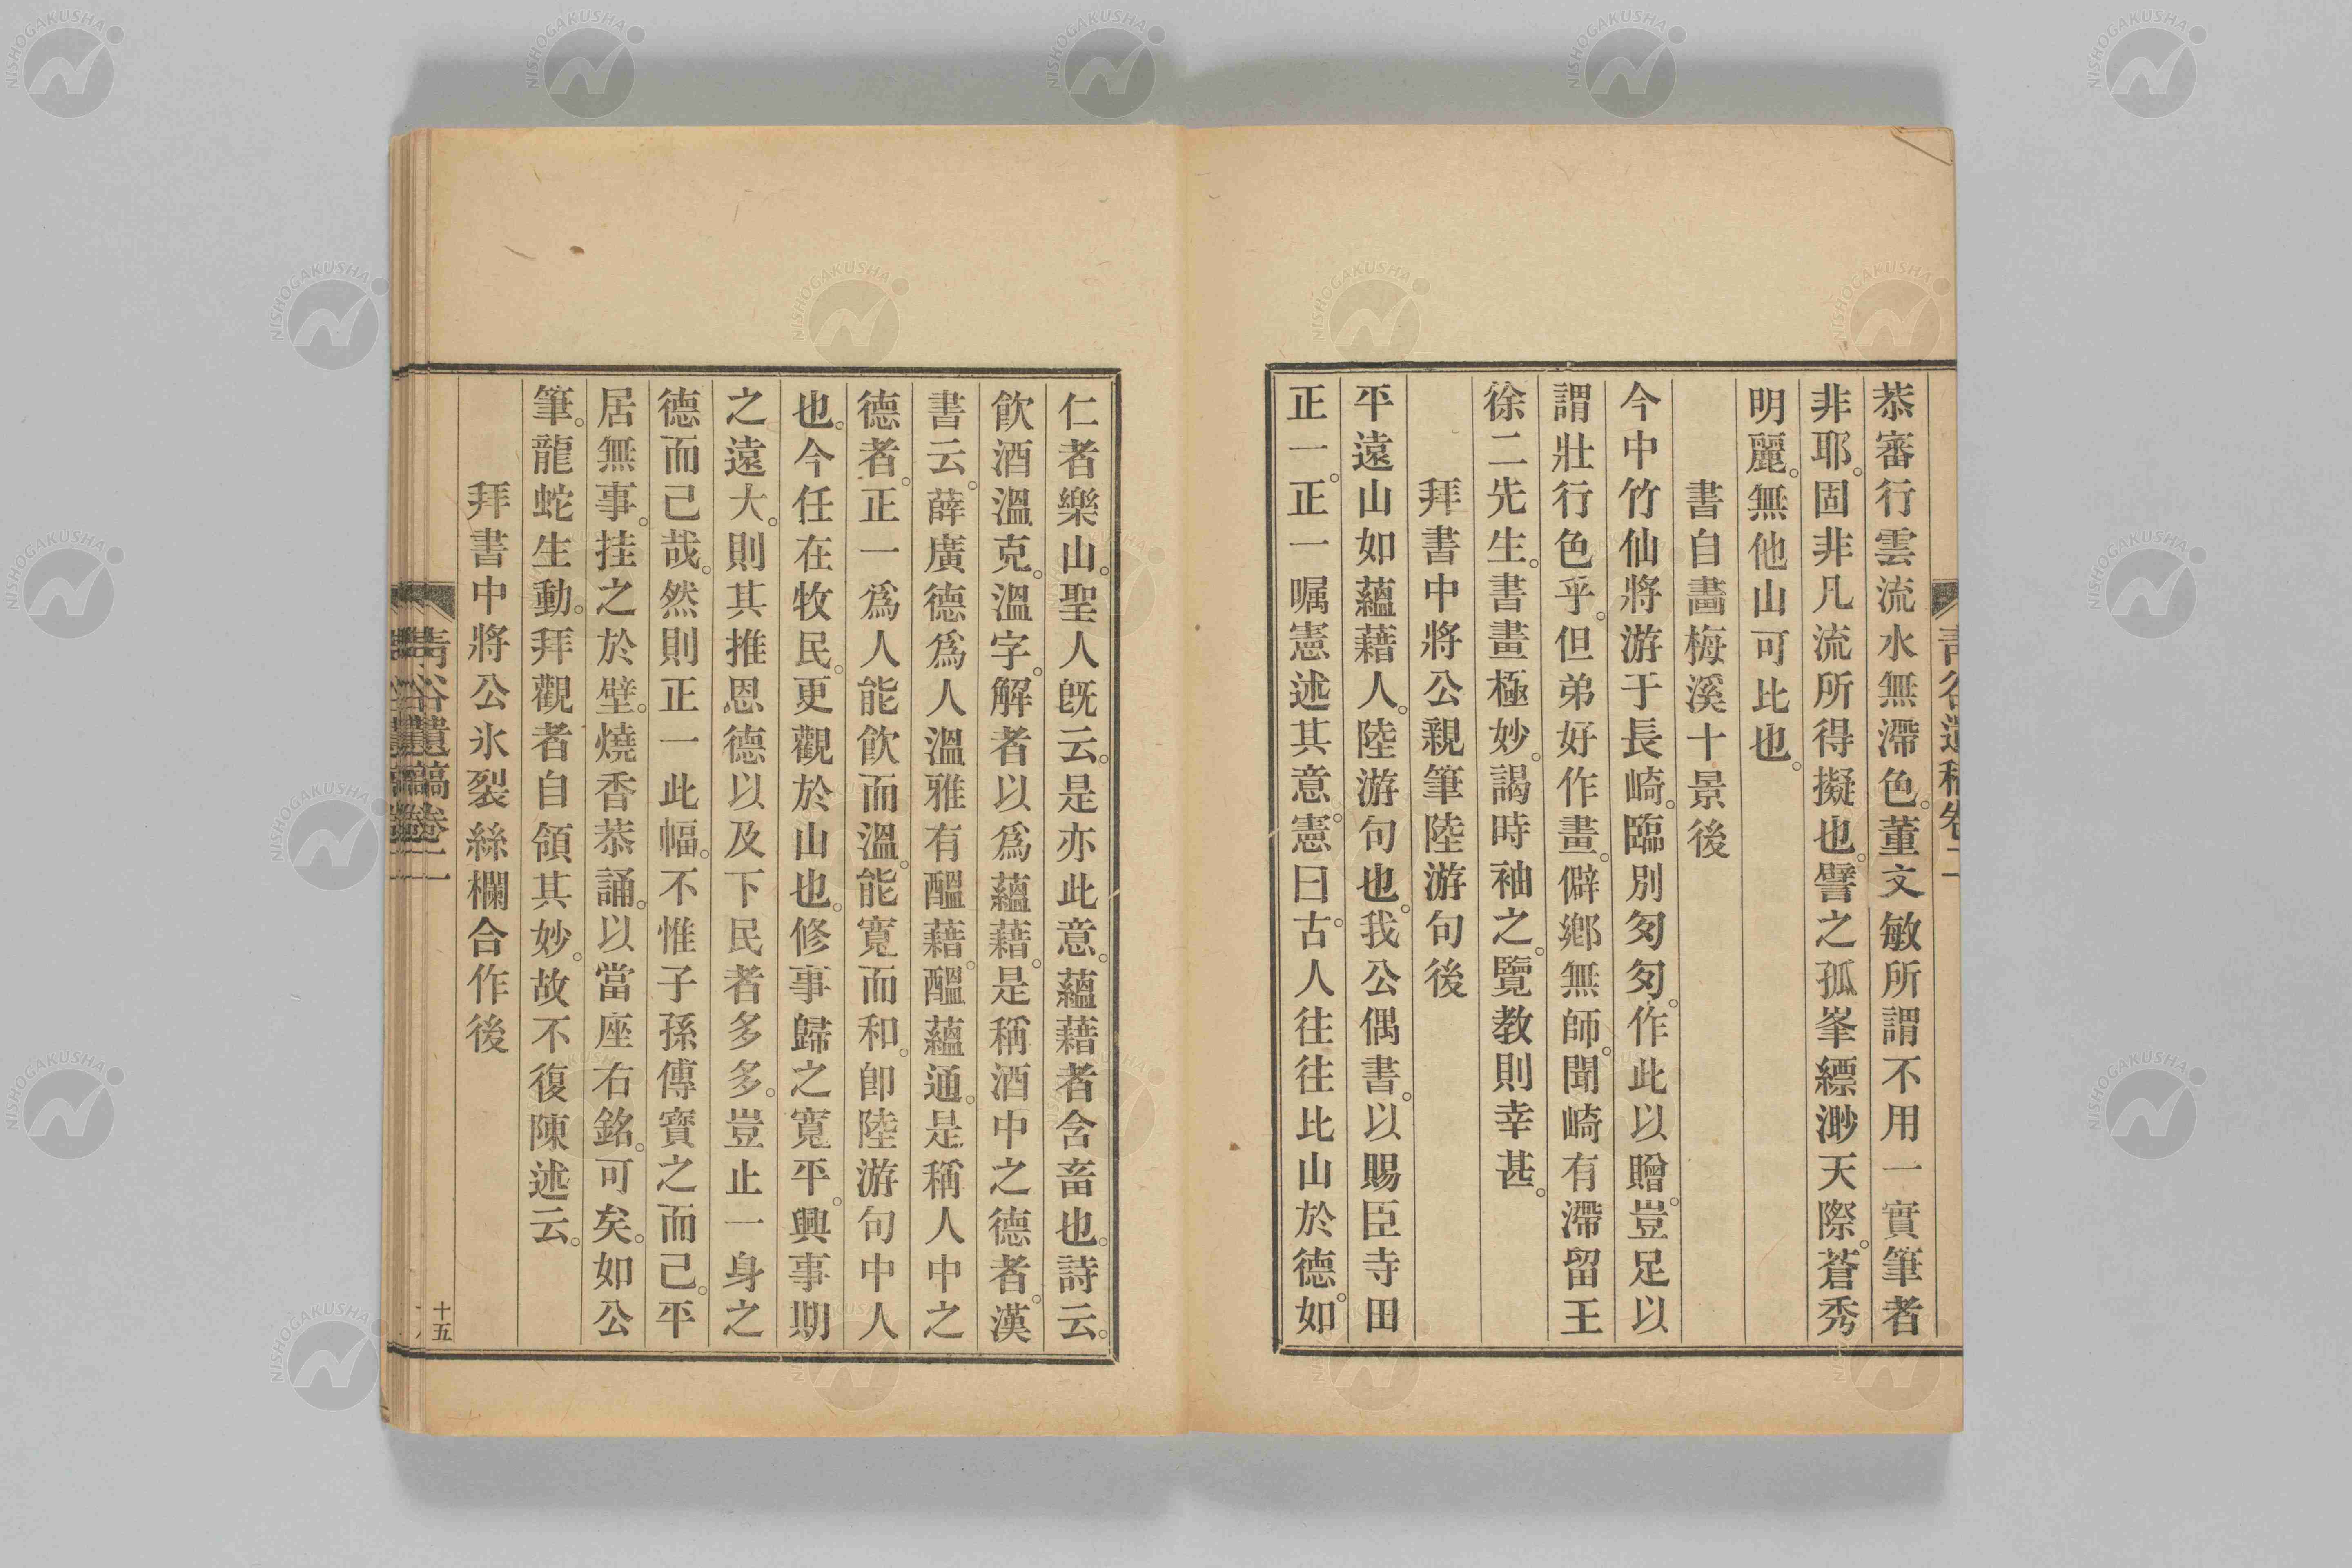 恭審行雲流水無滯色。董文敏所謂不用一實筆者
非耶。固非凡流所得擬也。譬之孤峯縹渺天際。蒼秀
明麗。無他山可比也。
書自畵梅溪十景後
今中竹仙將游于長崎。臨別匆匆。作此以贈。豈足以
謂壯行色乎。但弟好作畫。僻鄕無師。聞崎有滯留王
徐二先生。書畫極妙。謁時袖之。覽教則幸甚。
拜書中將公親筆陸游句後
平遠山如蘊藉人。陸游句也。我公偶書。以賜臣寺田
正一。正一嘱憲述其意。憲曰。古人往往比山於德。如
仁者樂山。聖人旣云。是亦此意。蘊藉者含畜也。詩云。
飮酒溫克。溫字。解者以爲蘊藉。是稱酒中之德者。漢
書云。薛廣德爲人溫雅有醞藉。醞蘊通。是稱人中之
德者。正一爲人能飮而溫。能寬而和。卽陸游句中人
也。今任在牧民。更觀於山也。修事歸之寬平。興事期
之遠大。則其推恩德以及下民者多多。豈止一身之
德而已哉。然則正一此幅。不惟子孫傳寶之而已。平
居無事。挂之於壁。燒香恭誦。以當座右銘。可矣。如公
筆。龍蛇生動。拜觀者自領其妙。故不復陳述云。
拜書中將公氷裂絲欄合作後
靑谷遺稿卷二
十五
NISHOGAKUSHA